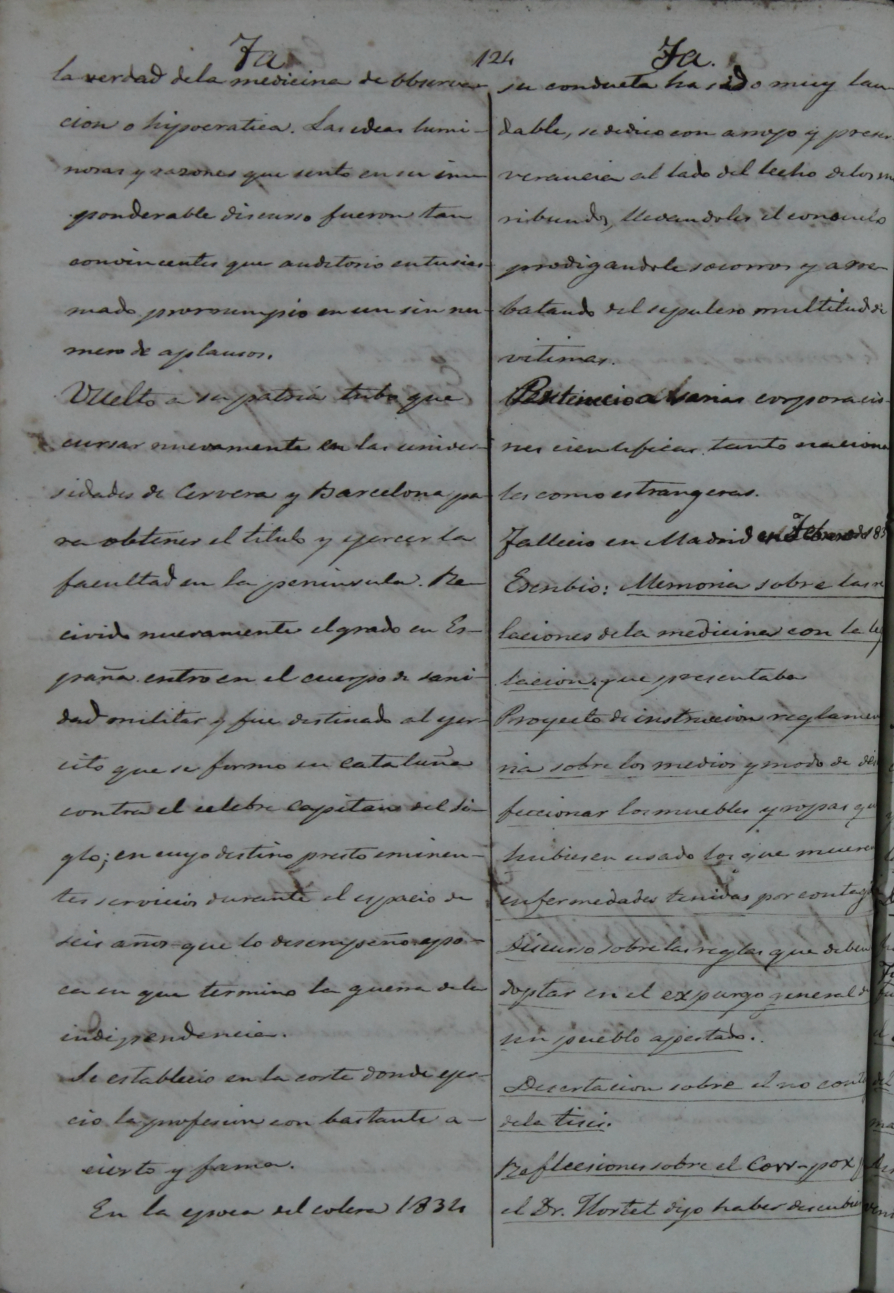 Fa.
124
Fa.
la verdad de la medicina de observa-
cion o hipocratica. Las ideas lumi-
nosas y razones que sento en su inm
ponderable discurso fueron tan
convincentes que auditorio entusias-
mado prorrumpio en un sin nu-
mero de aplausos.
Vuelto a su patria tubo que
cursar nuevamente en las univer-
sidades de Cervera y Barcelona pa-
ra obtener el titulo y ejercer la
facultad en la peninsula. Re-
civido nuevamente el grado en Es-
paña entro en el cuerpo de sani-
dad militar y fue destinado al ejer-
cito que se formo en cataluña
contra el celebre capitan del si-
glo; en cuyo destino presto eminen-
tes servicios durante el espacio de
seis años que lo desempeño epo-
ca en que termino la guerra de la
independencia.
Se establecio en la corte donde ejer-
cio la profesion con bastante a-
cierto y fama.
En la epoca del colera 1834
su conducta ha sido muy lau
dable, se dedico con arrojo y perse
verancia al lado del lecho de los mo
ribundos, llevandoles el consuelo
prodigandole socorros y arre-
batando del sepulcro multitud de
vitimas.
Pertinecio a varias corporacio-
nes cientificas tanto naciona
les como estrangeras.
Fallecio en Madrid en Febrero de 185
Escribio: Memoria sobre las re
laciones de la medicina con la le
lacion, que presentaba
Proyecto de instruccion reglamen
ria sobre los medios y modo de des
feccionar los muebles y ropas qu
hubiesen usado los que mueren
enfermedades tenidas por contag
Discurso sobre las reglas que deben
doptar en el expurgo general de
un pueblo apestado.
Desertacion sobre el no conta
de la tisis.
Reflecsiones sobre el Cow-pox
el Dr. Hortet dijo haber descubi